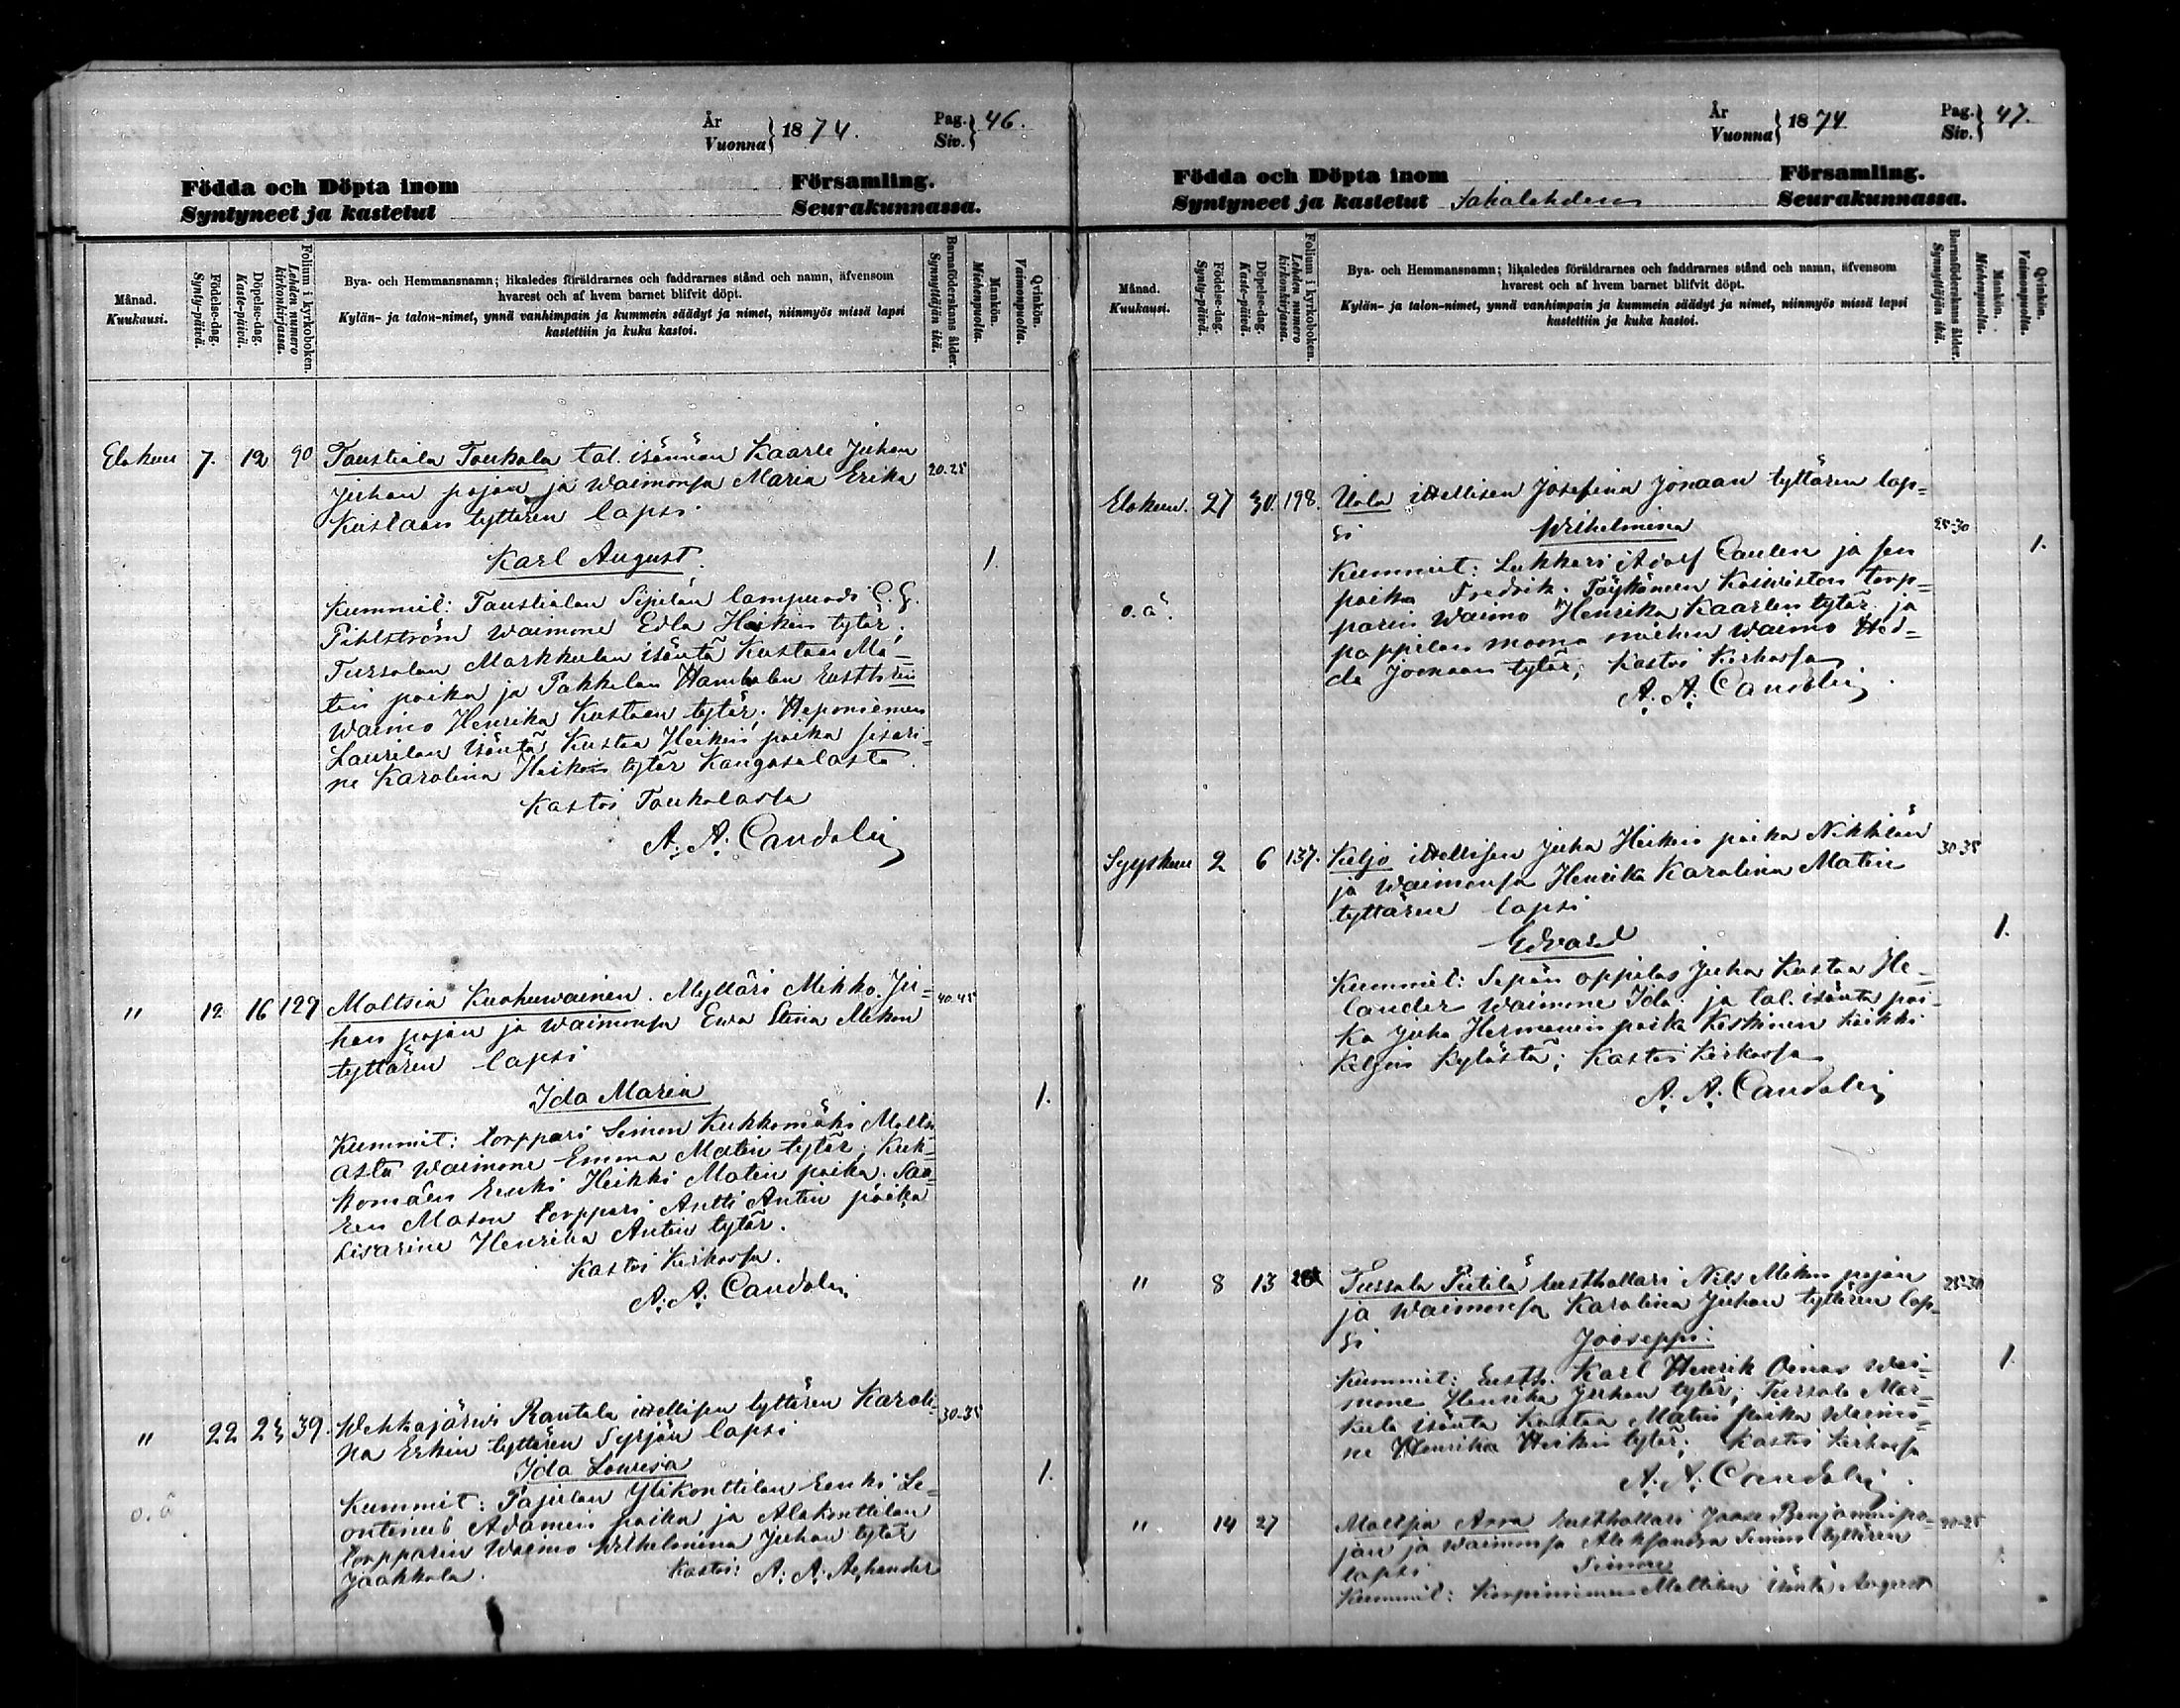 År
Vuonna } 1874.
Pag.
Siv. } 46.
Födda och Döpta inom Församling.
Syntyneet ja kastetut Seurakunnassa.
Månad.
Kuukausi.
Födelse-dag.
Synty-päivä.
Döpelse-dag.
Kaste-päivä.
Folium i kyrkoboken.
Lehden numero kirkonkirjassa.
Bya- och Hemmansnamn; likaledes föräldrarnes och faddrarnes stånd och namn, äfvensom
hvarest och af hvem barnet blifvit döpt.
Kylän- ja talon-nimet, ynnä vanhimpain ja kummein säädyt ja nimet, niinmyös missä lapsi
kastettiin ja kuka kastoi.
Barnaföderskans ålder.
Synnyttäjän ikä.
Mankön.
Miehenpuolta.
Qvinkön.
Vaimonpuolta.
Elokuu 7. 12 90 Taustiala Toukola tal. isännän Kaarle Juhan 20.25
Juhan pojan ja waimonsa Maria Erika
Kustaan tyttären lapsi
Karl August. 1.
Kummit: Taustialan Sipilän lampuodi C. G.
Pihlström waimone Edla Heikin tytär;
Tursolan Markkulan isäntä Kustaa Ma-
tin poika ja Pakkalan Hambolan Eusth:rin
waimo Henrika Kustaan tytär; Heponiemen
Laurilan isäntä Kustaa Heikin poika sisari-
ne Karolina Heikin tytär Kangasalasta.
Kastoi Toukolassa
A. A. Candolin
" 12 16 127 Moltsia Kuohuwainen. Mylläri Mikko Ju- 40.45
han pojan ja waimonsa Ewa Stina Mikon
tyttären lapsi
Ida Maria 1.
Kummit: torppari Simon Kukkomäki Molts
asta waimone Emma Matin tytär; Kuk-
komäen Renki Heikki Matin poika. Saa-
ren Maton torppari Antti Antin poika
sisarine Henrika Antin tytär.
Kastoi Kirkossa.
A. A. Candolin
" 22 23 39. Wehkajärwi Rautala itellisen tyttären Karoli- 30-35
na Erkin tyttären Syrjän lapsi
Ida Lowisa 1.
o. ä. Kummit: Pajulan Ylikonttilan Renki Le-
ontinus Adamin poika ja Alakonttilan
torpparin waimo Wilhelmina Juhan tytär
Jaakkola. Kastoi: A. A.
År
Vuonna } 1874
Pag.
Siv. } 47.
Födda och Döpta inom Församling.
Syntyneet ja kastetut Sahalahden Seurakunnassa.
Månad.
Kuukausi.
Födelse-dag.
Synty-päivä.
Döpelse-dag.
Kaste-päivä.
Folium i kyrkoboken.
Lehden numero kirkonkirjassa.
Bya- och Hemmansnamn; likaledes föräldrarnes och faddrarnes stånd och namn, äfvensom
hvarest och af hvem barnet blifvit döpt.
Kylän- ja talon-nimet, ynnä vanhimpain ja kummein säädyt ja nimet, niinmyös missä lapsi
kastettiin ja kuka kastoi.
Barnaföderskans ålder.
Synnyttäjän ikä.
Mankön.
Miehenpuolta.
Qvinkön.
Vaimonpuolta.
Elokuu. 27 30. 198. itellisen Josefina Jonaan tyttären lap-
si Wilhelmina 25-30 1.
Kummit: Lukkari Adolf Caulen ja sen
o. ä. poika Fredrik. Töykönen Koiwiston torp-
parin waimo Henrika Kaarlen tytär ja
pappilan miehen waimo Hed-
da Joonaan tytär; Kastoi Kirkossa
A. A. Candolin.
Syyskuu 2 6 137. Keljo itellisen Juha Heikin poika Nikkilän 30-35
ja waimonsa Henrika Karolina Matin
tyttären lapsi
Edvard 1.
Kummit: Sepän oppilas Juha Kustaa He-
lander waimone Ida ja tal. isäntä poi-
ka Juha Hermanin poika Keskinen kaikki
Keljon kylästä; Kastoi Kirkossa
A. A. Candolin
" 8 13 Tursola Pietilä Rusthollari Nils Mikon pojan 25-30
ja waimonsa Karolina Juhan tyttären lap-
si Jooseppi. 1.
Kummit: Rusth. Karl Henrik Oinas wai-
mone Henrika Juhan tytär; Tursola Mar-
kula isäntä Kustaa Matin poika waimo-
ne Henrika Heikin tytär; Kastoi Kirkossa
A. A. Candolin.
" 14 27 Moltsia Rusthollari Joose Benjaminipo- 20-25
jan ja waimonsa Aleksandra Simin tyttären
lapsi Simon
Kummit: Korpiniemen Mattilan isäntä August